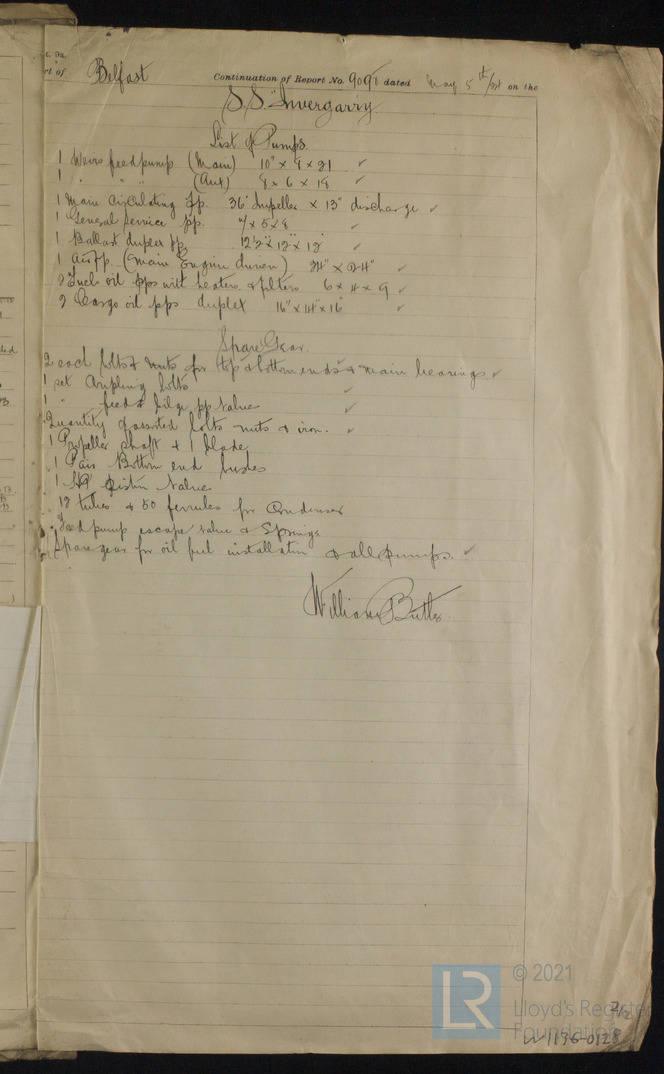 Port of Belfast Continuation of Report No. 9091 dated May 5th on the
S.S. "Invergarry
List of Pumps.
1 Weirs feed pump (Main) 10" x 8 x 21 ✓
1 " " " (Aux) 8 x 6 x 18 ✓
1 Main Circulating pp. 36" Impeller x 13" discharge ✓
1 General Service pp. 7 x 5 x 8 ✓
1 Ballast duplex pp. 12½" x 12" x 12" ✓
1 Air pp. (Main Engine driven) 24" x 24" ✓
2 Fuel oil pps with heaters & filters 6 x 4 x 9 ✓
2 Cargo oil pps duplex 16" x 14" x 16" ✓
Spare Gear.
2 each bolts & nuts for top & bottom ends & main bearings ✓
1 set Coupling bolts ✓
1 " feed & bilge pp valves ✓
Quantity of assorted bolts nuts & iron. ✓
1 Propeller shaft & 1 blade
1 Pair Bottom end bushes
1 HP Piston Valve
12 tubes & 50 ferrules for Condenser
Feed pump escape valve & Springs
Spare gear for oil fuel installation & all pumps. ✓
William Butler
© 2021
Lloyd's Register
Foundation
2/2
W1136-0128